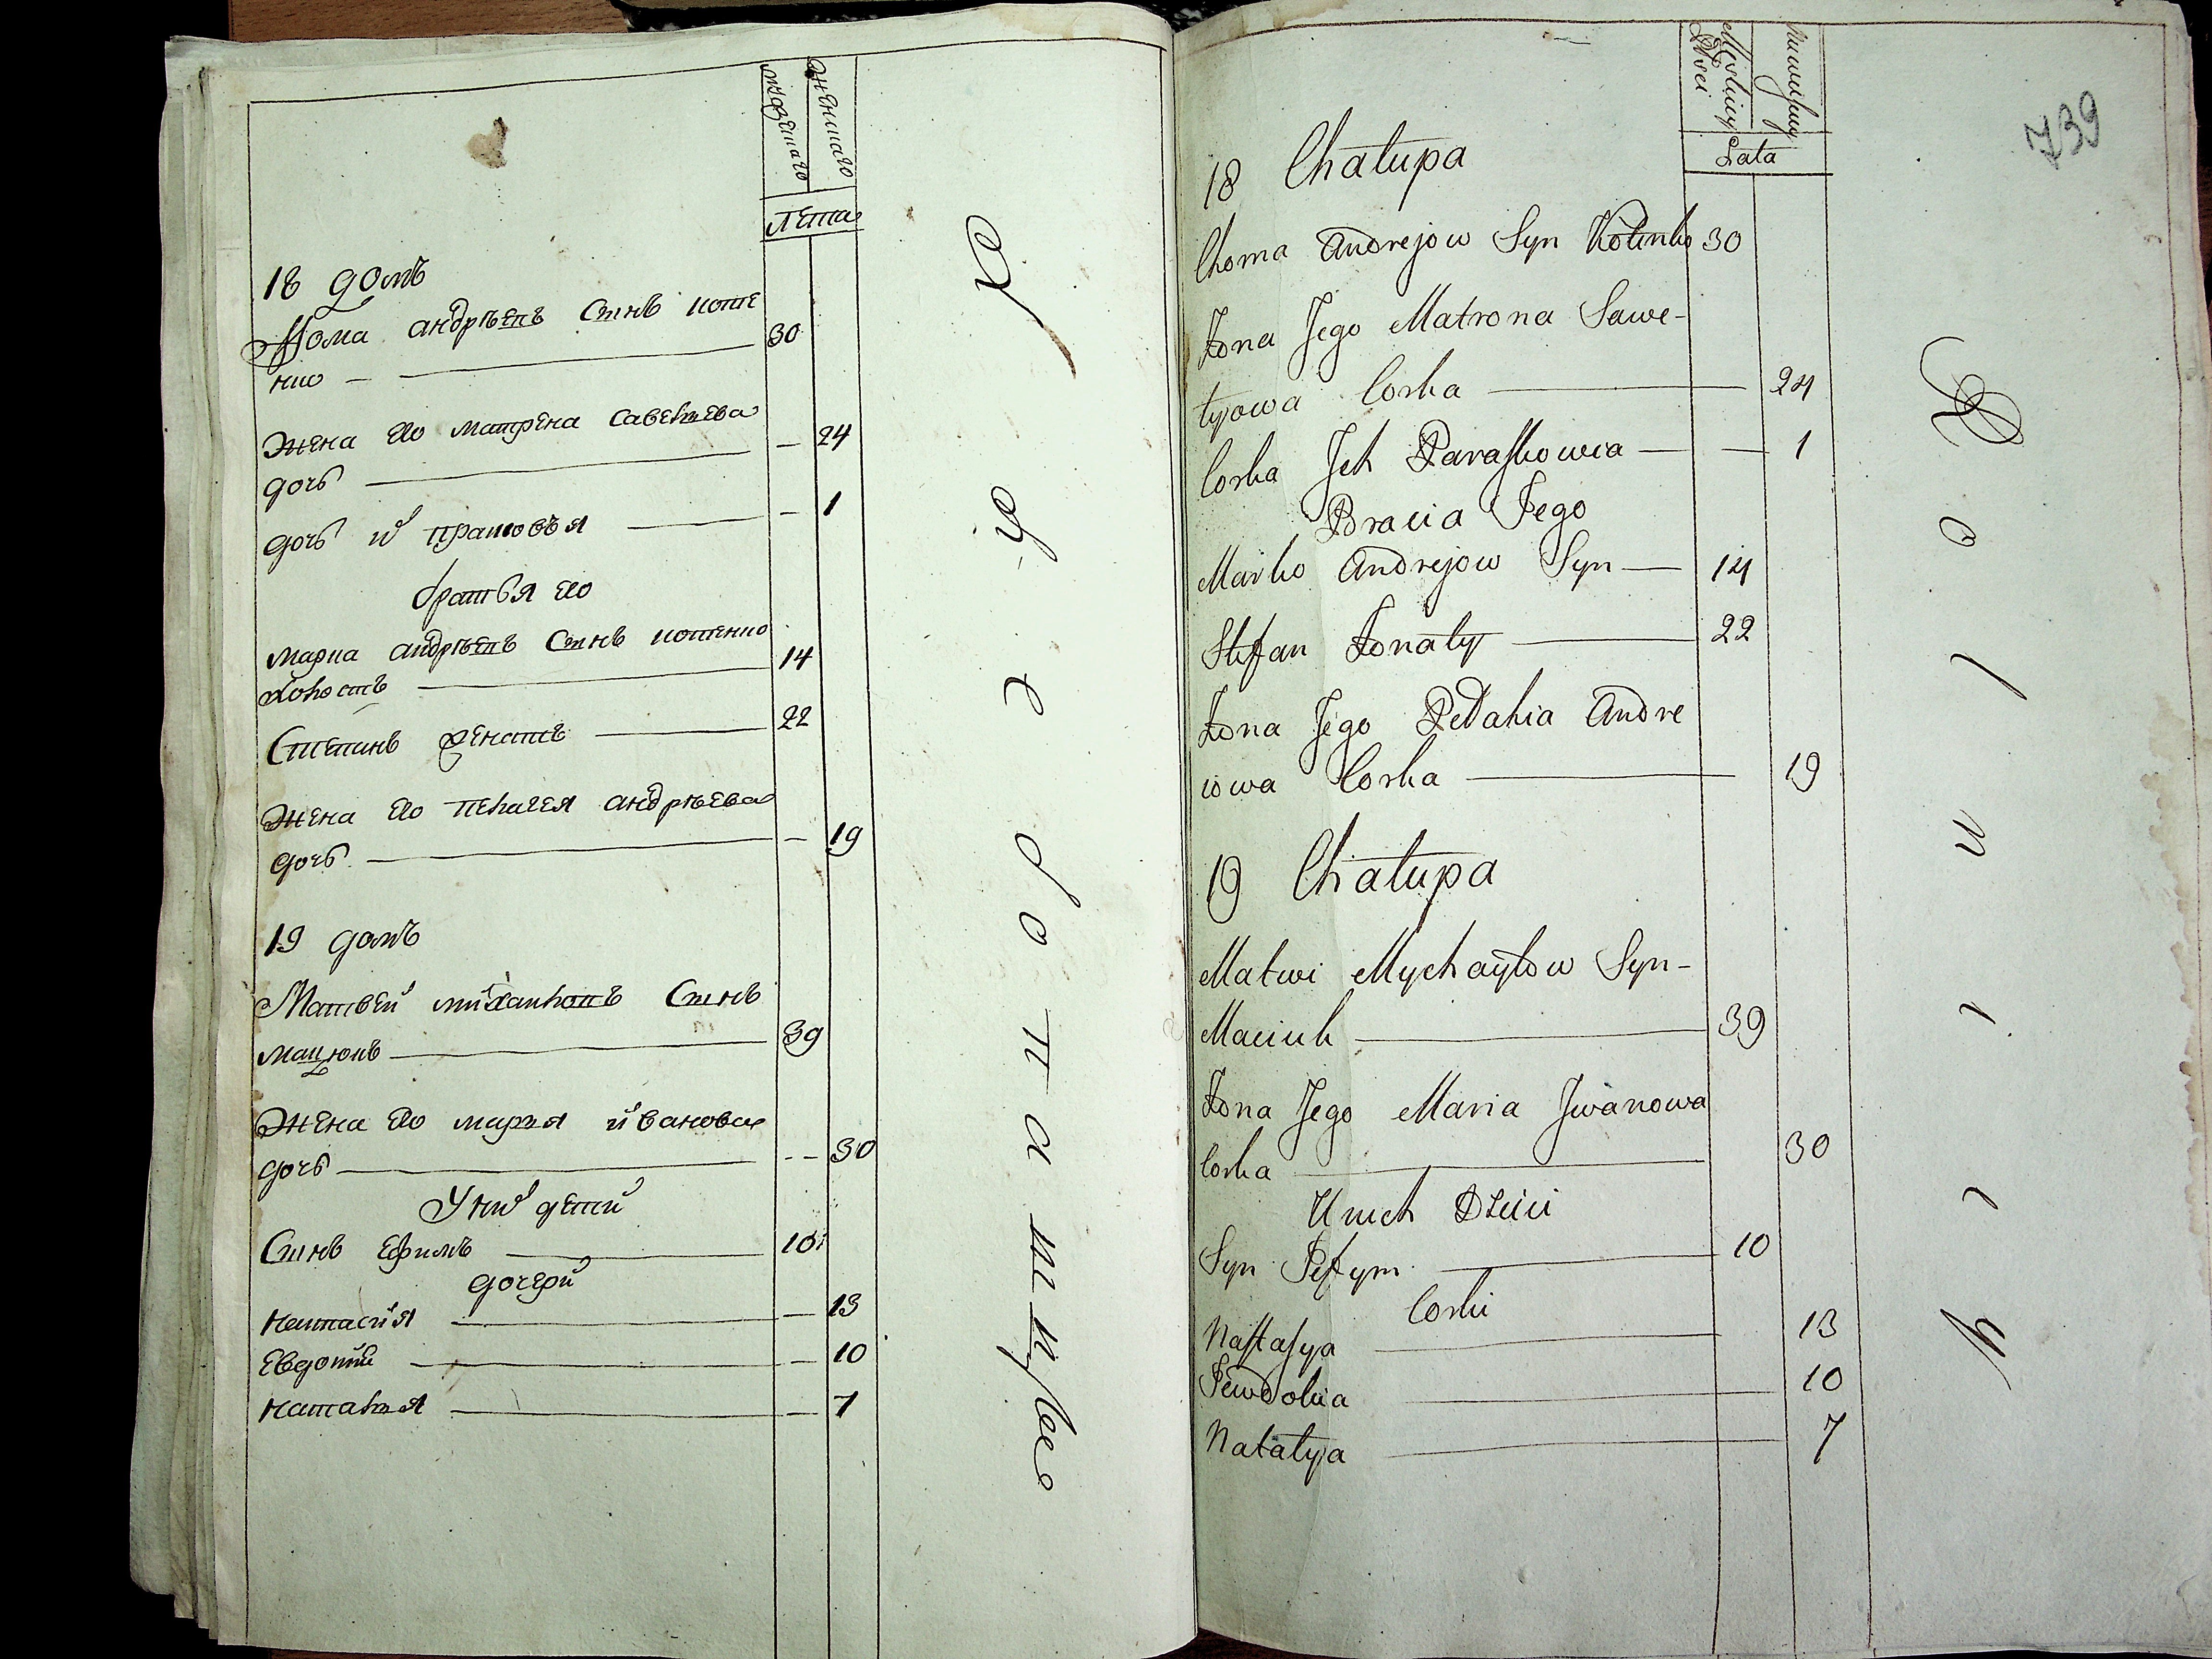 мужескаго
женскаго
Лета
18 домъ
Хома андрѣевъ Сынъ коте
нко — 30
жена его матрена савельева
дочь — 24
дочь их прасковья — 1
братья его
марка андрѣевъ Сынъ котенко
холостъ — 14
Степанъ женатъ — 22
жена его пелагея андрѣева
дочь — 19
19 домъ
Матвей михайловъ Сынъ
мацюкъ — 39
жена его марья иванова
дочь — 30
У них детей
Сынъ Ефимъ — 10
дочерей
настасия — 13
Евдокия — 10
наталья — 7
739
Męskiey
Płci
Niewiesciey
Lata
18 Chałupa
Choma Andrejow Syn Kotenko 30
Żona Jego Matrona Sawe-
łyowa Corka — 24
Corka Jch Paraskowia — 1
Bracia Jego
Marko Andrejow Syn — 14
Stefan Żonaty — 22
Żona Jego Pełahia Andre
iowa Corka — 19
19 Chałupa
Matwi Mychayłow Syn-
Maciuk — 39
Żona Jego Maria Jwanowa
Corka — 30
U nich Dzieci
Syn Jefym — 10
Corki
Nastasya — 13
Jewdokia — 10
Natałya — 7